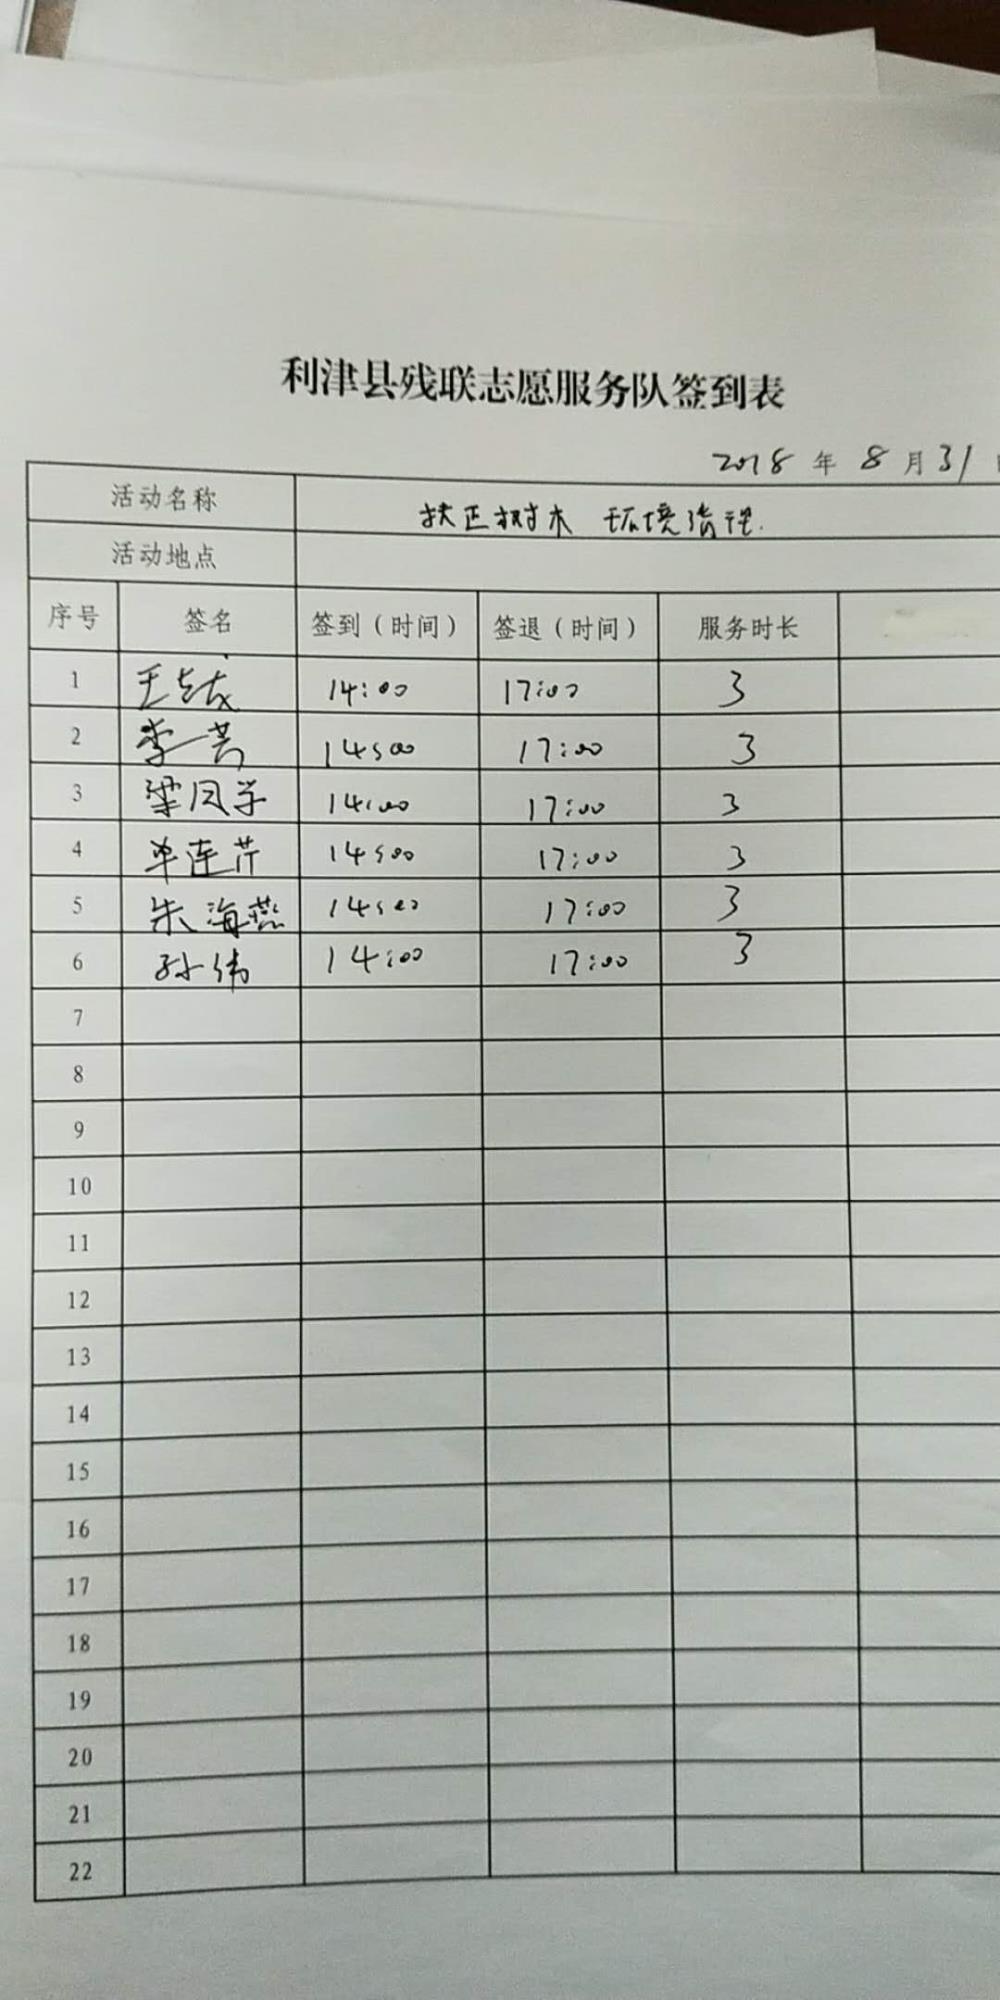 利津县残联志愿服务队签到表
2018 年 8 月 31
活动名称 扶正树木 环境清理.
活动地点
序号 签名 签到（时间） 签退（时间） 服务时长
1 王 14:00 17:00 3
2 李一芳 14:00 17:00 3
3 梁凤学 14:00 17:00 3
4 单连芹 14:00 17:00 3
5 朱海燕 14:00 17:00 3
6 孙伟 14:00 17:00 3
7
8
9
10
11
12
13
14
15
16
17
18
19
20
21
22